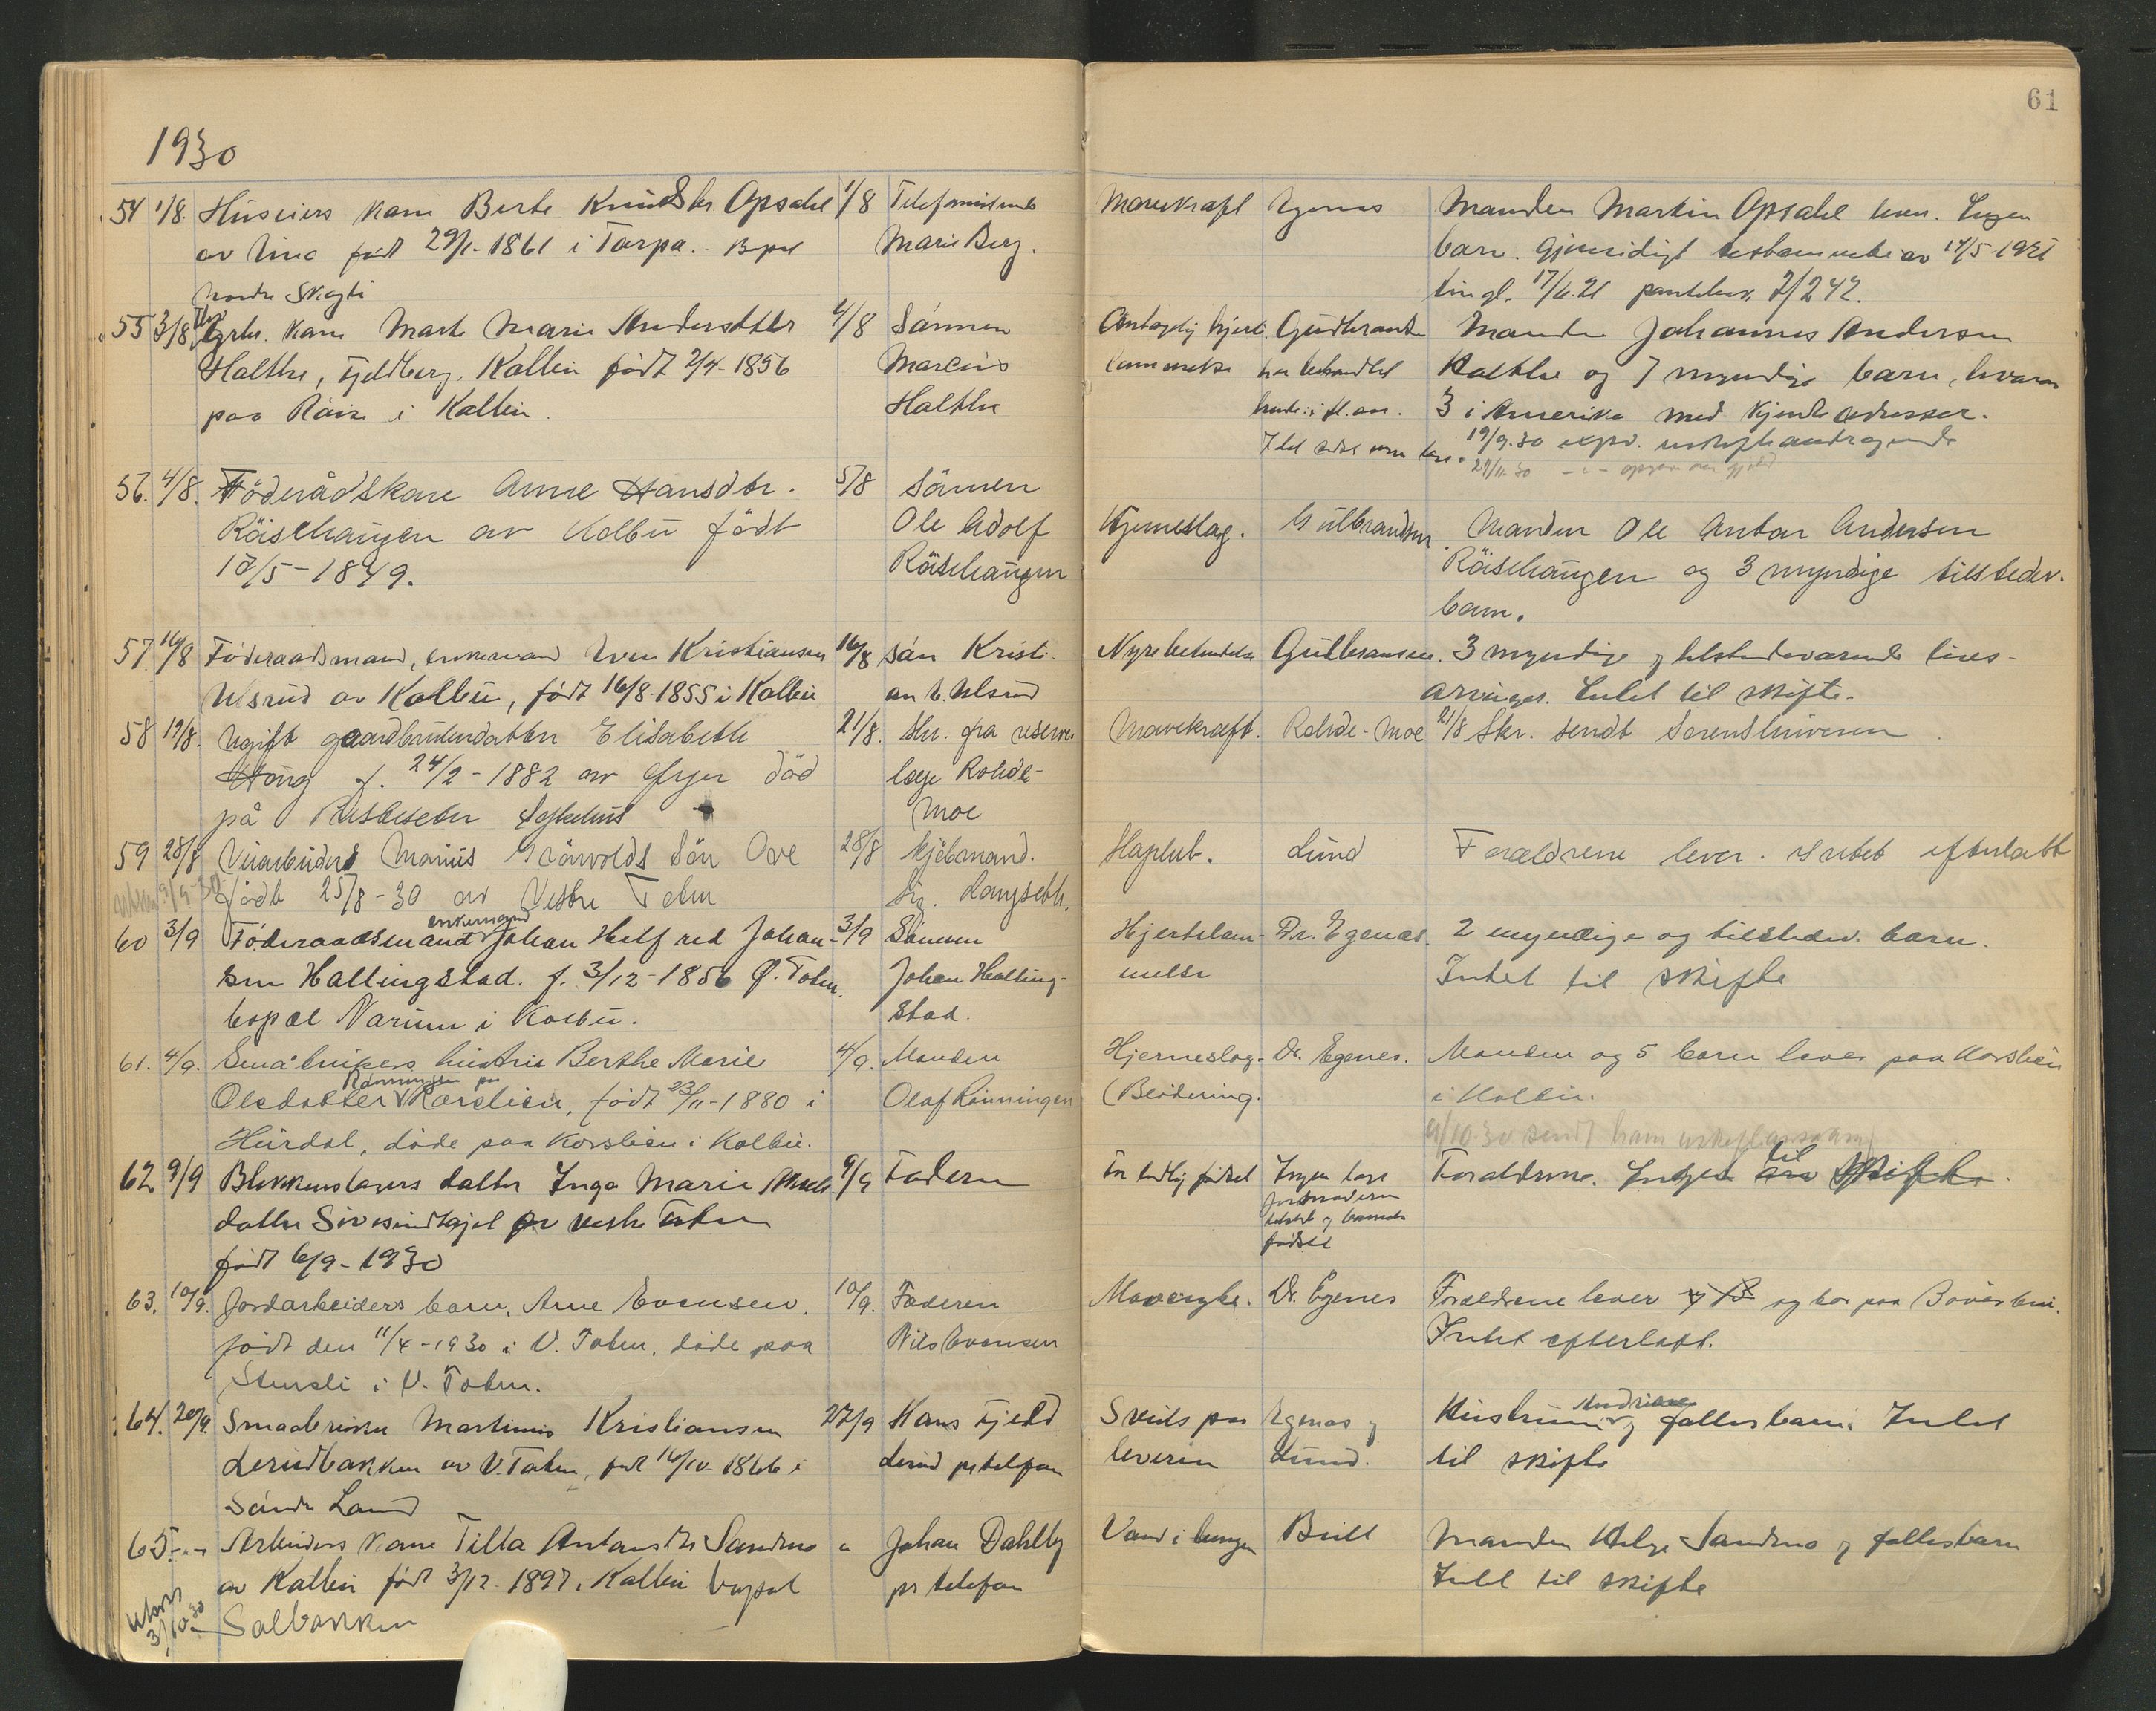 61
1930
54 1/8. Huseiers kone Berte Knudsdtr Opsahl 1/8 Telefonistinde Mavekræft Egenæs Manden Martin Opsahl lever. Ingen
av Lena født 29/1-1861 i Torpa. Bopel Marie Berg. barn. Gjensidigt testamente av 14/5-1921
nordre Skogli tingl. 17/6.21 panteb. 7/242.
55 3/8 Grbr. kone Marte Marie Andersdtter 4/8 Sønnen Antagelig hjerte Gudbrandsen Manden Johannes Andersen
Halthe, Fjeldberg, Kolbu født 2/4-1856 Marcius lammelse har behandlet Halthe og 7 myndige barn, hvorav
paa Røise i Kolbu. Halthe hende i fl. aar. 3 i Amerika med kjendte adresser.
19/9.30 exped.
29/11.30
56. 4/8. Føderådskone Anne Hansdtr. 5/8 Sønnen Hjerneslag. Gulbrandsen. Manden Ole Anton Andersen
Røisehaugen av Kolbu født Ole Adolf Røisehaugen og 3 myndige tilstedev.
17/5-1849. Røisehaugen barn.
57. 16/8 Føderaadsmand, enkemand Even Kristiansen 16/8 søn Kristi- Nyrebetendelse Gulbransen. 3 myndige og tilstedeværende livs-
Ulsrud av Kolbu, født 16/8-1855 i Kolbu an E. Ulsrud arvinger. Intet til skifte.
58 19/8. Ugift gaardbrukerdatter Elisabeth 21/8. Skr. fra reserve- Mavekræft. Rohde-Moe 21/8 Skr. sendt Sorenskriveren.
Haug f. 24/2-1882 av Eger død læge Rohde-
på Resteseter Sykehus Moe
59 28/8 Veiarbeiders Marius Grønvolds Søn Ove 28/8 kjøbmand. Haplub. Lund Forældrene lever. Intet efterlatt
født 25/8-30 av Vestre Toten Sig. Langseth.
60 3/9 Føderaadsmand enkemand Johan Helfred Johan- 3/9 Sønnen Hjertelam- Dr. Egenæs. 2 myndige og tilstedev. barn.
sen Hallingstad. f. 3/12-1856 Ø. Toten. Johan Halling- melse Intet til skifte
bopæl Narum i Kolbu. stad.
61. 4/9. Småbrukers hustru Berthe Marie 4/9. Manden Hjerneslag. Dr. Egenes. Manden og 5 barn lever paa Korslien
Olsdatter Rønningen paa Korslien, født 23/11-1880 i Olaf Rønningen (Blødning. i Kolbu.
Hurdal, døde paa Korslien i Kolbu. 9/10.30 sendt ham
62 9/9 Blikkenslagers datter Inga Marie Niels 9/9 Faderen For tidlig fødsel Ingen læge Forældrene. Intet til skifte.
datter Sivesindhajet av vestre Toten Jordmoderen tilstede
født 6/9-1930 fødsel
63. 10/9. Jordarbeiders barn, Arne Evensen. 10/9. Faderen Mavesyke. Dr. Egenes Forældrene lever og bor paa Bøverbru.
født den 11/4-1930 i V. Toten, døde paa Nils Evensen Intet efterlatt.
Stensli i V. Toten.
64. 20/9. Smaabruker Martinus Kristiansen 27/9 Hans Fjeld Svuls paa Egenæs og Hustruen Andrine og fællesbarn. Intet
Lerudbakken av V. Toten, født 16/10-1866 i Lerud pr telefon leveren Lund. til skifte
Søndre Land
65. -"- Arbeiders kone Tilla Antonsdtr Sandmo " Johan Dahlby Vand i lungen Bull Manden Helge Sandmo og fællesbarn
av Kolbu født 3/12 1897 i Kolbu bopæl pr telefon Intet til skifte
3/10-30 Solbakken